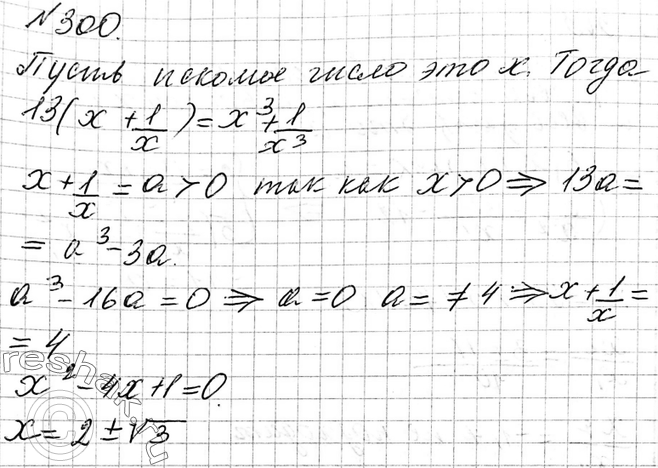 №300.
Пусть искомое число это x. Тогда
13(x + 1/x) = x³ + 1/x³
x + 1/x = a > 0 так как x > 0 ⇒ 13a =
= a³ - 3a.
a³ - 16a = 0 ⇒ a = 0 a = ≠ 4 ⇒ x + 1/x =
= 4
x² - 4x + 1 = 0.
x = 2 ± √3